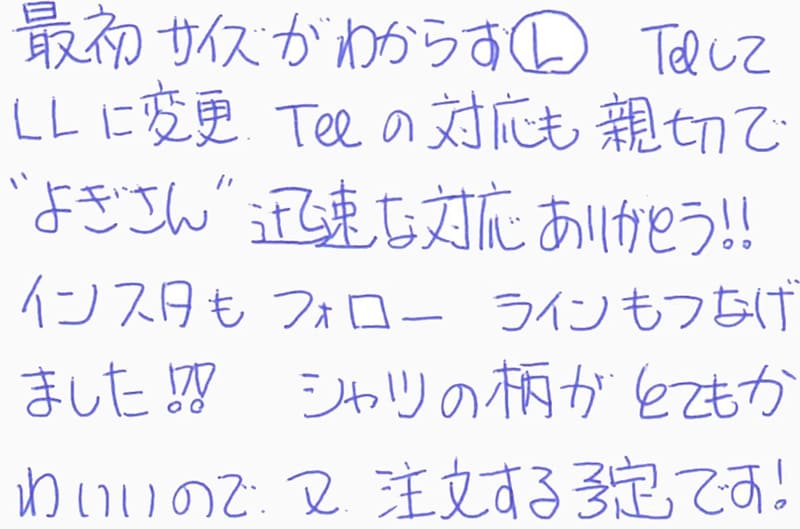 最初サイズがわからずⓁ Telして
LLに変更 Telの対応も親切で
"よぎさん"迅速な対応ありがとう!!
インスタもフォロー ラインもつなげ
ました!! シャツの柄がとてもか
わいいので又注文する予定です!